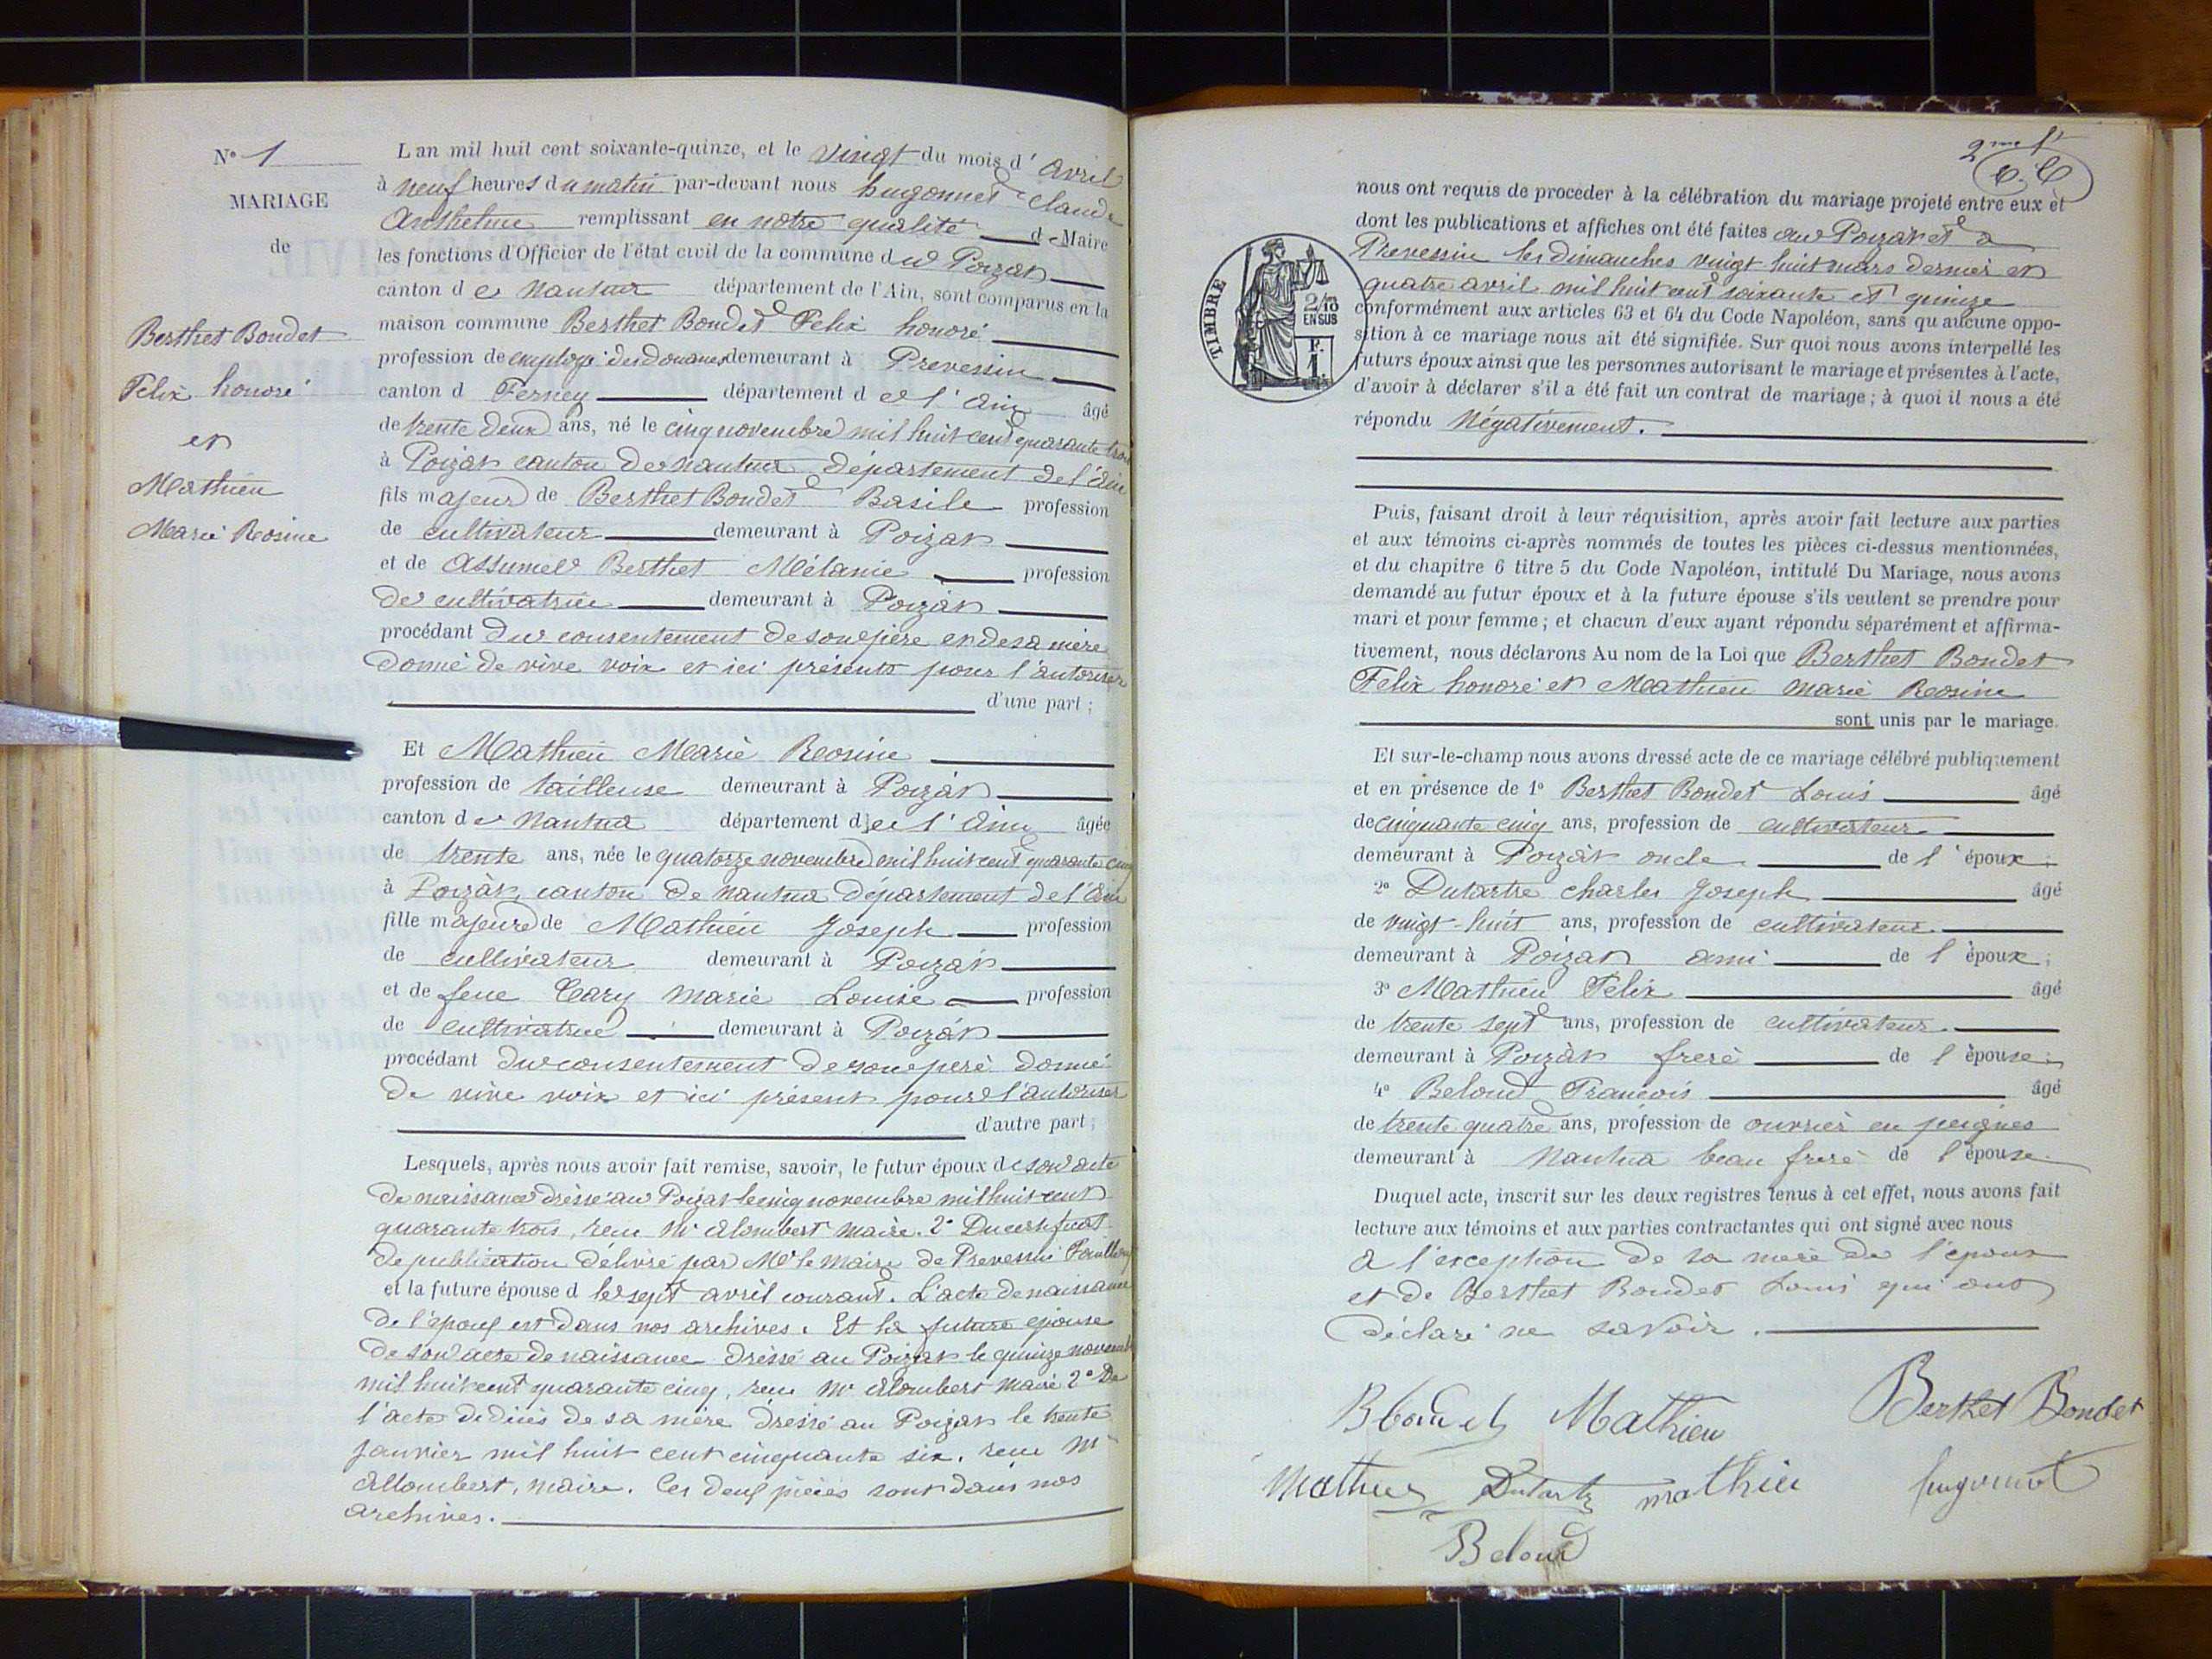 N° 1
MARIAGE
de
Berthet Bondet
Félix honoré
et
Mathieu
Marie Rosine
L'an mil huit cent soixante-quinze, et le vingt du mois d'avril
à neuf heures du matin par-devant nous hugonnet Claude
Anthelme remplissant en notre qualité de Maire
les fonctions d'Officier de l'état civil de la commune du Poizat
canton de Nantua département de l'Ain, sont comparus en la
maison commune Berthet Bondet Felix honoré
profession de employé des douanes demeurant à Prevessin
canton d Ferney département de l'ain âgé
de trente deux ans, né le cinq novembre mil huit cent quarante trois
à Poizat canton de nantua département de l'ain
fils majeur de Berthet Bondet Basile profession
de cultivateur demeurant à Poizat
et de Assumel Berthet Mélanie profession
de cultivatrice demeurant à Poizat
procédant du consentement de son père et de sa mère
donné de vive voix et ici présents pour l'autoriser
d'une part ;
Et Mathieu Marie Rosine
profession de tailleuse demeurant à Poizat
canton de Nantua département de l'ain âgée
de trente ans, née le quatorze novembre mil huit cent quarante cinq
à Poizat, canton de Nantua département de l'ain
fille majeure de Mathieu Joseph profession
de cultivateur demeurant à Poizat
et de feue Cary Marie Louise profession
de cultivatrice demeurant à Poizat
procédant du consentement de son père donné
de vive voix et ici présent pour l'autoriser
d'autre part ;
Lesquels, après nous avoir fait remise, savoir, le futur époux de son acte
de naissance dressé au Poizat le cinq novembre mil huit cent
quarante trois, reçu Mr Alombert Maire. 2° Du certificat
de publication délivré par Mr le Maire de Prevessin
et la future épouse d le sept avril courant. L'acte de naissance
de l'époux est dans nos archives. Et la future épouse
de son acte de naissance dressé au Poizat le quinze novembre
mil huit cent quarante cinq, reçu Mr Alombert Maire 2° De
l'acte de décès de sa mère dressé au Poizat le trente
janvier mil huit cent cinquante six, reçu Mr
Allombert, maire. Ces deux pièces sont dans nos
archives.
2me ft
C.C
TIMBRE
2/10 EN SUS
F. 1
nous ont requis de procéder à la célébration du mariage projeté entre eux et
dont les publications et affiches ont été faites au Poizat et à
Prevessin les dimanches vingt huit mars dernier et
quatre avril mil huit cent soixante et quinze
conformément aux articles 63 et 64 du Code Napoléon, sans qu'aucune oppo-
sition à ce mariage nous ait été signifiée. Sur quoi nous avons interpellé les
futurs époux ainsi que les personnes autorisant le mariage et présentes à l'acte,
d'avoir à déclarer s'il a été fait un contrat de mariage ; à quoi il nous a été
répondu Négativement.
Puis, faisant droit à leur réquisition, après avoir fait lecture aux parties
et aux témoins ci-après nommés de toutes les pièces ci-dessus mentionnées,
et du chapitre 6 titre 5 du Code Napoléon, intitulé Du Mariage, nous avons
demandé au futur époux et à la future épouse s'ils veulent se prendre pour
mari et pour femme ; et chacun d'eux ayant répondu séparément et affirma-
tivement, nous déclarons Au nom de la Loi que Berthet Bondet
Félix honoré et Mathieu Marie Rosine
sont unis par le mariage.
Et sur-le-champ nous avons dressé acte de ce mariage célébré publiquement
et en présence de 1° Berthet Bondet Louis âgé
de cinquante cinq ans, profession de cultivateur
demeurant à Poizat oncle de l'époux ;
2° Dutartre charles Joseph âgé
de vingt-huit ans, profession de cultivateur.
demeurant à Poizat ami de l'époux ;
3° Mathieu Félix âgé
de trente sept ans, profession de cultivateur.
demeurant à Poizat frère de l'épouse ;
4° Beloud François âgé
de trente quatre ans, profession de ouvrier en peignes
demeurant à Nantua beau frère de l'épouse.
Duquel acte, inscrit sur les deux registres tenus à cet effet, nous avons fait
lecture aux témoins et aux parties contractantes qui ont signé avec nous
à l'exception de sa mère de l'époux
et de Berthet Bondet Louis qui ont
déclaré ne savoir.
Mathieu Berthet Bondet
Mathieu Dutartre mathieu hugonnet
Beloud